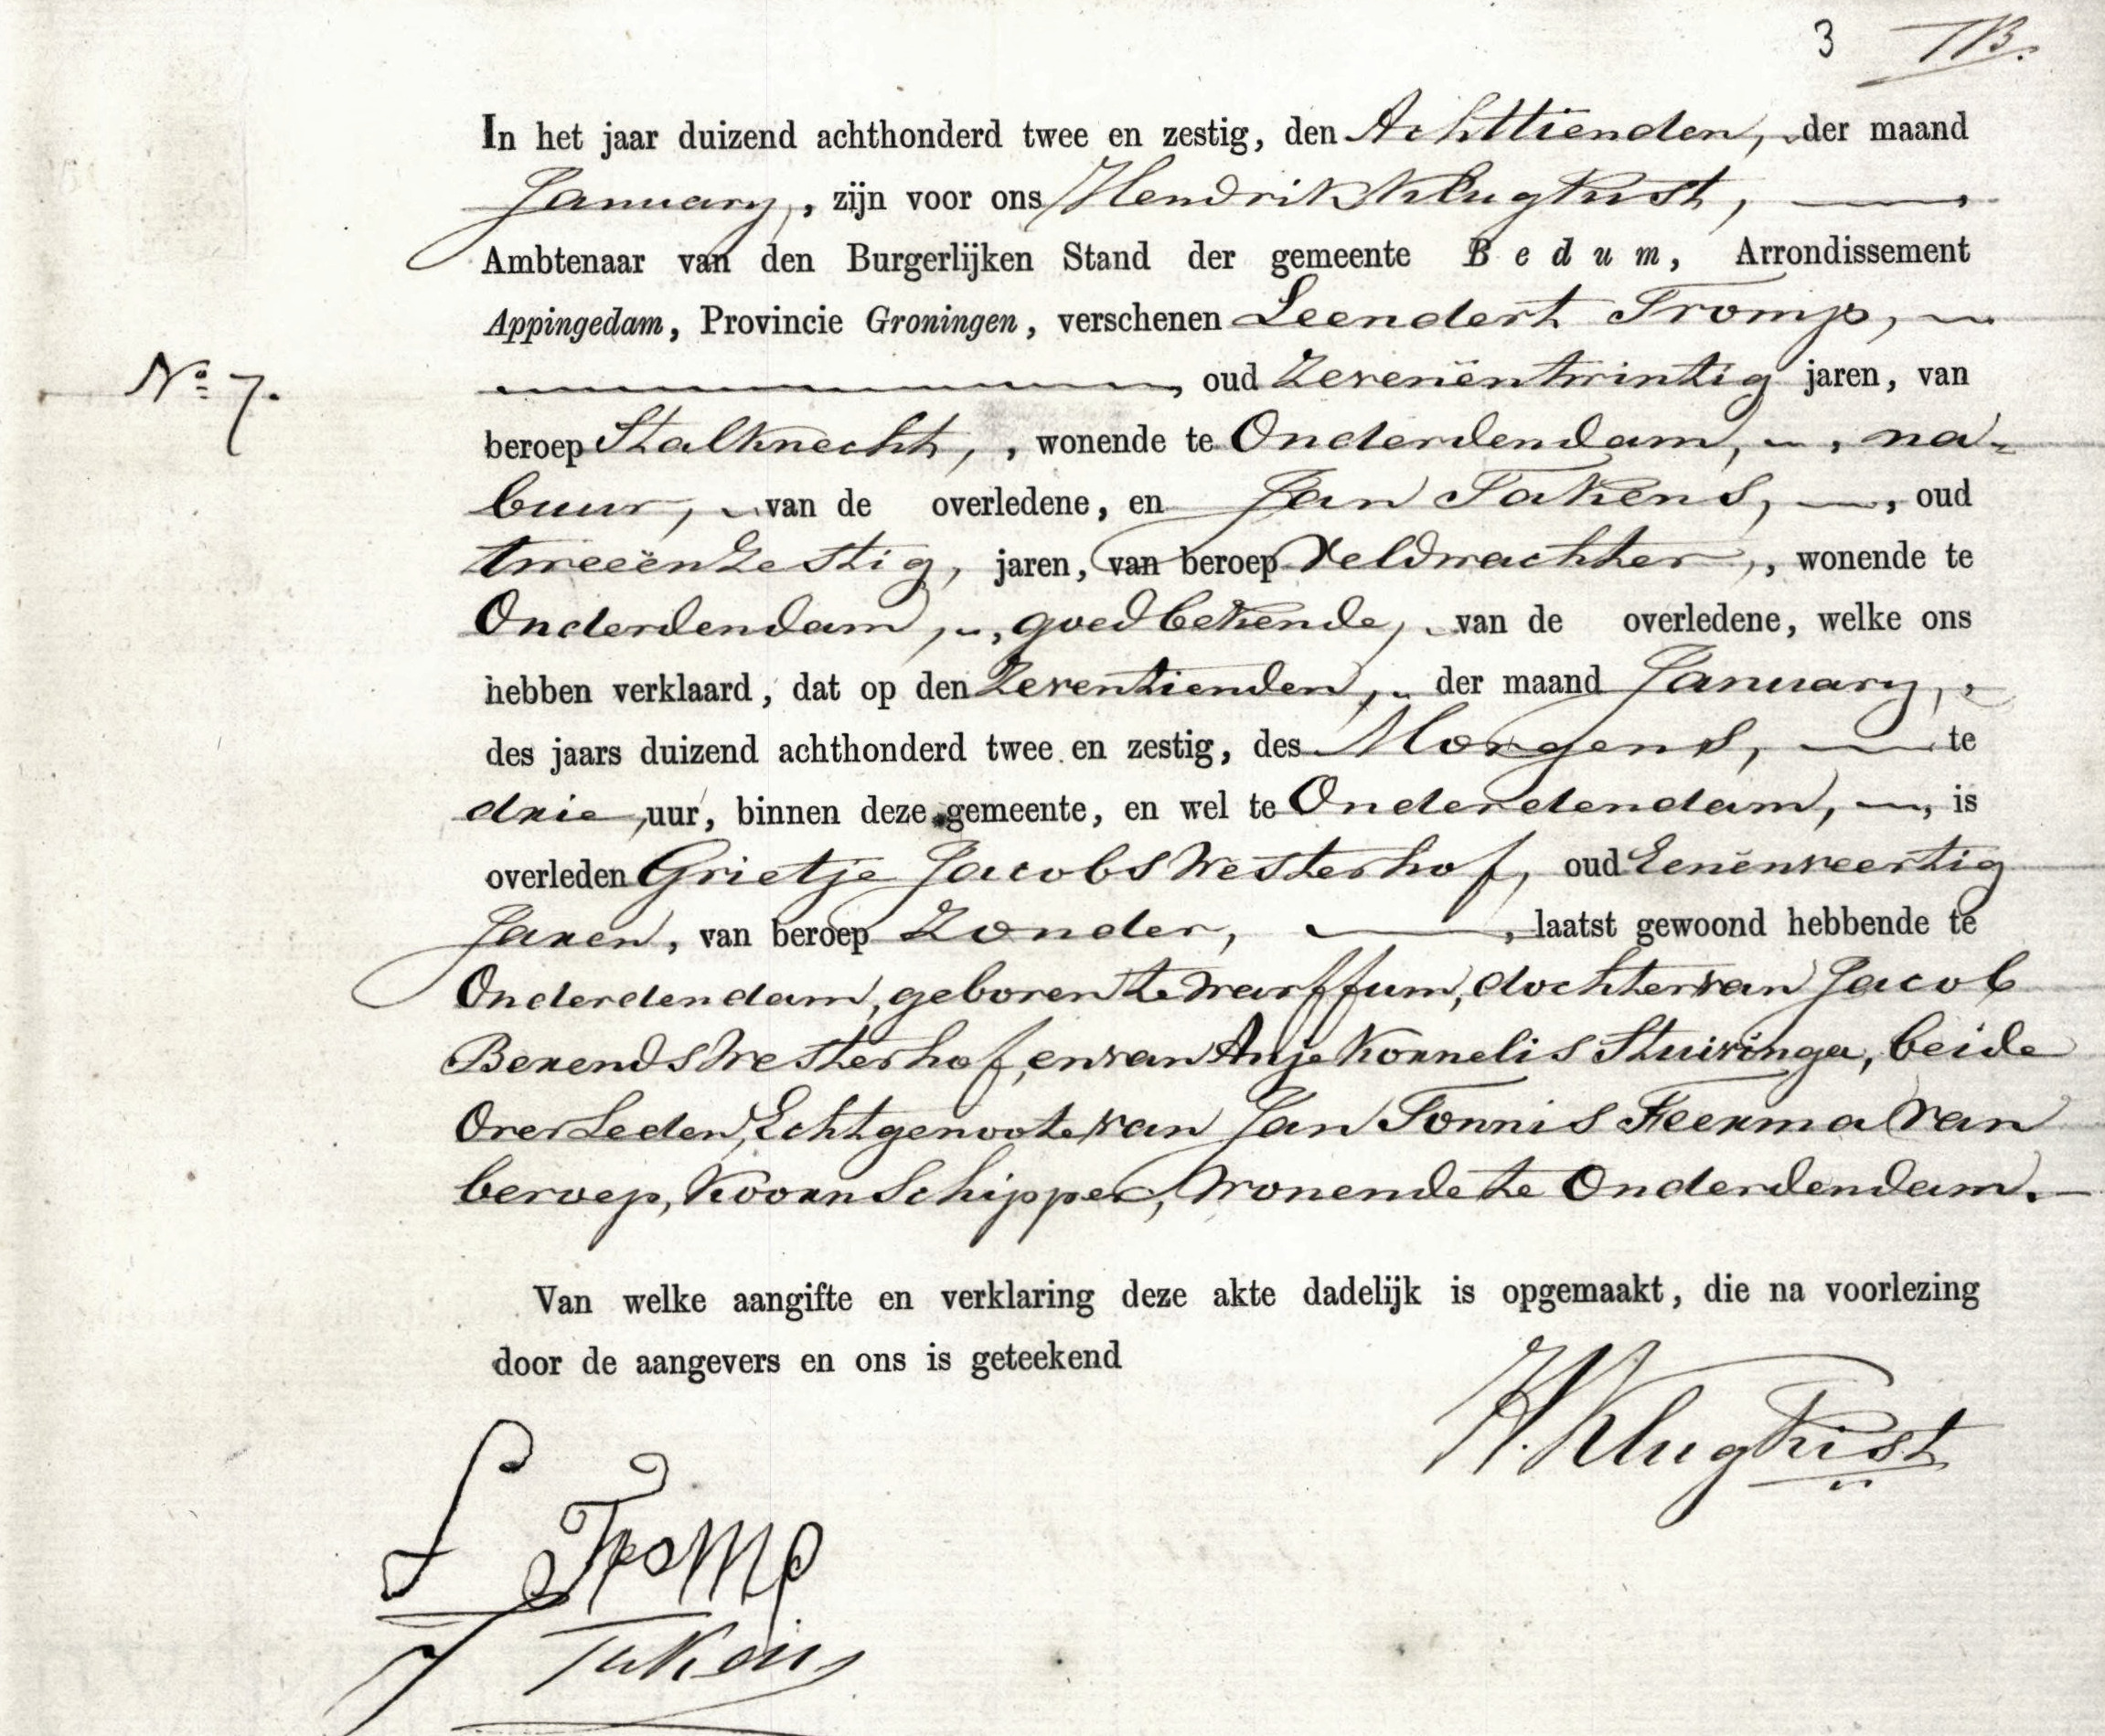 3 TB.
In het jaar duizend achthonderd twee en zestig, den Achttienden, der maand
January, zijn voor ons Hendrik Klugkist,
Ambtenaar van den Burgerlijken Stand der gemeente Bedum, Arrondissement
Appingedam, Provincie Groningen, verschenen Leendert Tromp,
No 7.
oud Zevenëntwintig jaren, van
beroep Stalknecht, , wonende te Onderdendam, , na-
buur, van de overledene, en Jan Takens, , oud
tweeënzestig, jaren, van beroep Veldwachter, , wonende te
Onderdendam, , goed bekende, van de overledene, welke ons
hebben verklaard, dat op den Zeventienden, der maand January,
des jaars duizend achthonderd twee en zestig, des Morgens, te
drie uur, binnen deze gemeente, en wel te Onderdendam, , is
overleden Grietje Jacobs Westerhof, oud Eenënveertig
Jaren, van beroep Zonder, , laatst gewoond hebbende te
Onderdendam, geboren te Warffum, dochter van Jacob
Berends Westerhof, en van Anje Kornelis Stuivinga, beide
Overleden, Echtgenoote van Jan Tonnis Feerma van
beroep, Koorn Schipper, Wonende te Onderdendam.
Van welke aangifte en verklaring deze akte dadelijk is opgemaakt, die na voorlezing
door de aangevers en ons is geteekend
H. Klugkist
L Tromp
J Takens